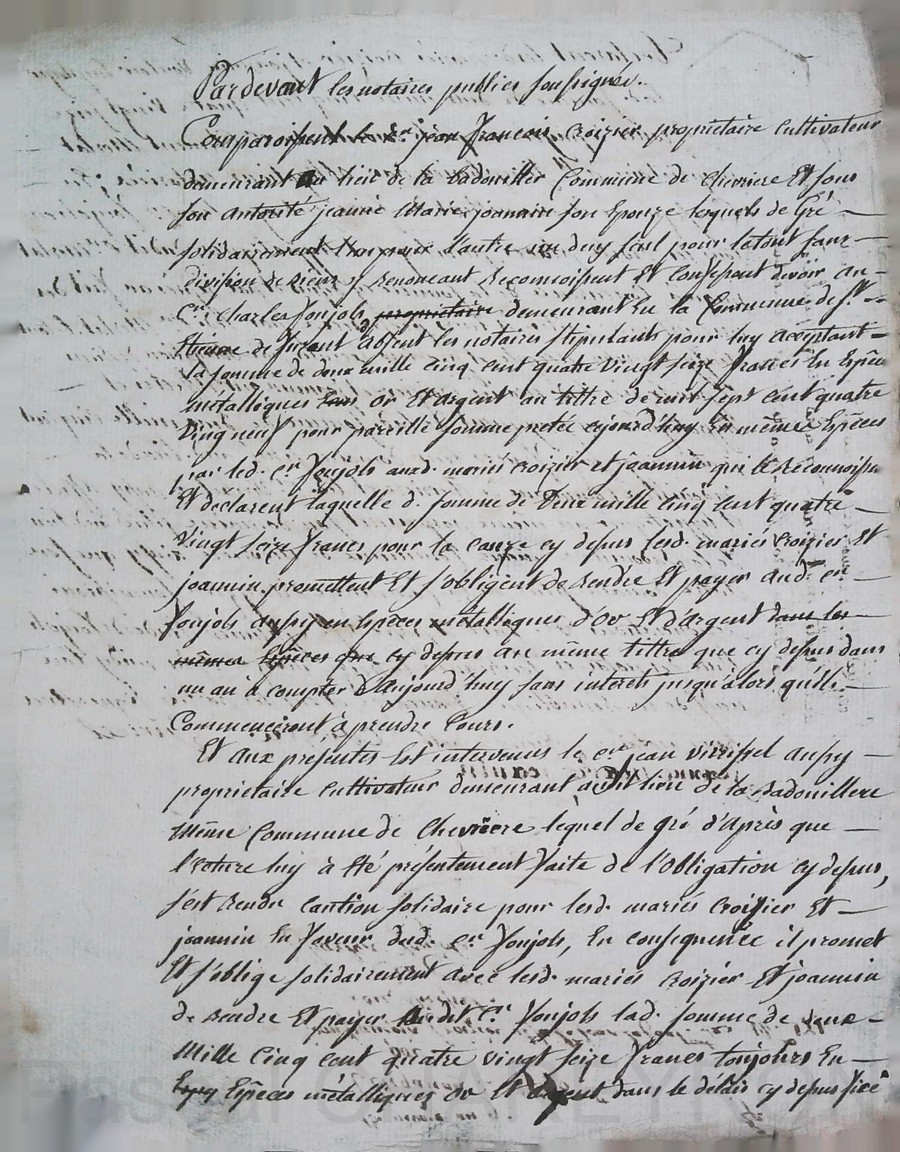 Pardevant les notaires publics soussignés.
Comparoissent le Cn. jean francois Croizier propriétaire Cultivateur
demeurant au lieu de la badouiller Commune de Chevriere Et sous
son Antorité jeanne Marie joannin son Epouze lesquels de Gré
solidairement l'un pour l'autre un d'uy seul pour letout sans
division renoncant Reconnoissent Et Confessent devoir au
Cn. Charles Jonjols propriétaire demeurant En la Commune de St.
absent les notaires stipulants pour luy acceptant
la somme de deux mille cinq cent quatre vingt seize francs En Espèces
métalliques or Et argent au tittre de mil sept cent quatre
Vingt neuf pour pareille somme pretée aujourd'huy En mêmes Espèces
par led. Cn. Jonjols auxd. mariés croizier et joannin qui le Reconnoissent
Et declarent laquelle d. somme de Deux mille cinq cent quatre
Vingt seize francs pour la cauze cy depus lesd. mariés croizier Et
joannin promettent Et s'obligent de rendre Et payer aud. Cn
Jonjols aussy en Espèces métalliques d'Or Et d'argent dans les
mêmes Espèces que cy depus au même tittre que cy depus dans
un an à compter d'Aujourd'huy sans interets jusqu'alors qu'ils
Commenceront à prendre Cours.
Et aux présentes Est intervenus le Cn jean aussy
propriétaire Cultivateur demeurant audit lieu de la Badouillere
Même Commune de Chevriere lequel de gré d'Après que
lecture luy à Eté présentement faite de l'Obligation cy depus,
s'est Rendu Caution solidaire pour lesd. mariés Croizier Et
joannin En faveur dud. Cn Jonjols, En conséquence il promet
Et s'oblige solidairement avec lesd. mariés Croizier Et joannin
de Rendre Et payer audit Cn. Jonjols lad. somme de deux
Mille Cinq cent quatre vingt seize francs toujours En
Espèces métalliques or Et argent dans le délai cy depus fixé